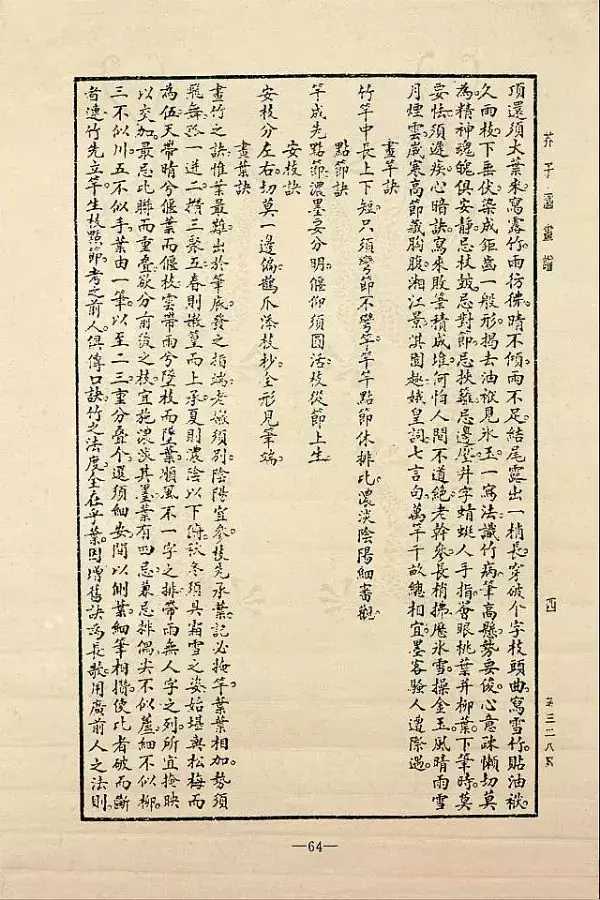 芥子園畫譜 四 第三二八頁
項還須大葉來寫露竹雨彷彿晴不傾雨不足結尾露出一梢長穿破个字枝頭曲寫雪竹貼油袱
久雨枝下垂伏染成鉅齒一般形揭去油袱見氷玉一寫法識竹病筆高懸勢要俊心意疎懶切莫
為精神魂魄俱安靜忌杖皷忌對節忌挾籬忌邊壓井字蜻蜓人手指薈眼桃葉并柳葉下筆時莫
要怯須遲疾心暗訣寫來敗筆積成堆何怕人間不道絕老幹參長梢拂歷氷雪操金玉風晴雨雪
月煙雲歲寒高節藏胸腹湘江景淇園趣娥皇詞七言句萬竿千畝總相宜墨客騷人遭際遇。
畫竿訣
竹竿中長上下短只須彎節不彎竿竿竿點節休排比濃淡陰陽細審觀
點節訣
竿成先點節濃墨要分明偃仰須圓活枝從節上生
安枝訣
安枝分左右切莫一邊偏鵲爪添枝杪全形見筆端。
畫葉訣
畫竹之訣惟葉最難出於筆底發之指端老嫩須別陰陽宜參枝先承葉必掩竿葉葉相加勢須
飛舞孤一迸二攢三聚五春則嫩篁而上承夏則濃陰以下俯秋冬須具霜雪之姿始堪與松梅而
為伍天帶晴兮偃葉而偃枝雲帶雨兮墜枝而墜葉順風不一字之排帶雨無人字之列所宜掩映
以交加最忌比聯而重疊欲分前後之枝宜施濃淡其墨葉有四忌兼忌排偶尖不似蘆細不似柳
三不似川五不似手葉由一筆以至二三重分叠个還須細安間以側葉細筆相攢使比者破而斷
者連竹先立竿生枝點節考之前人俱傳口訣竹之法度全在乎葉因增舊訣為長歌用廣前人之法則。
—64—